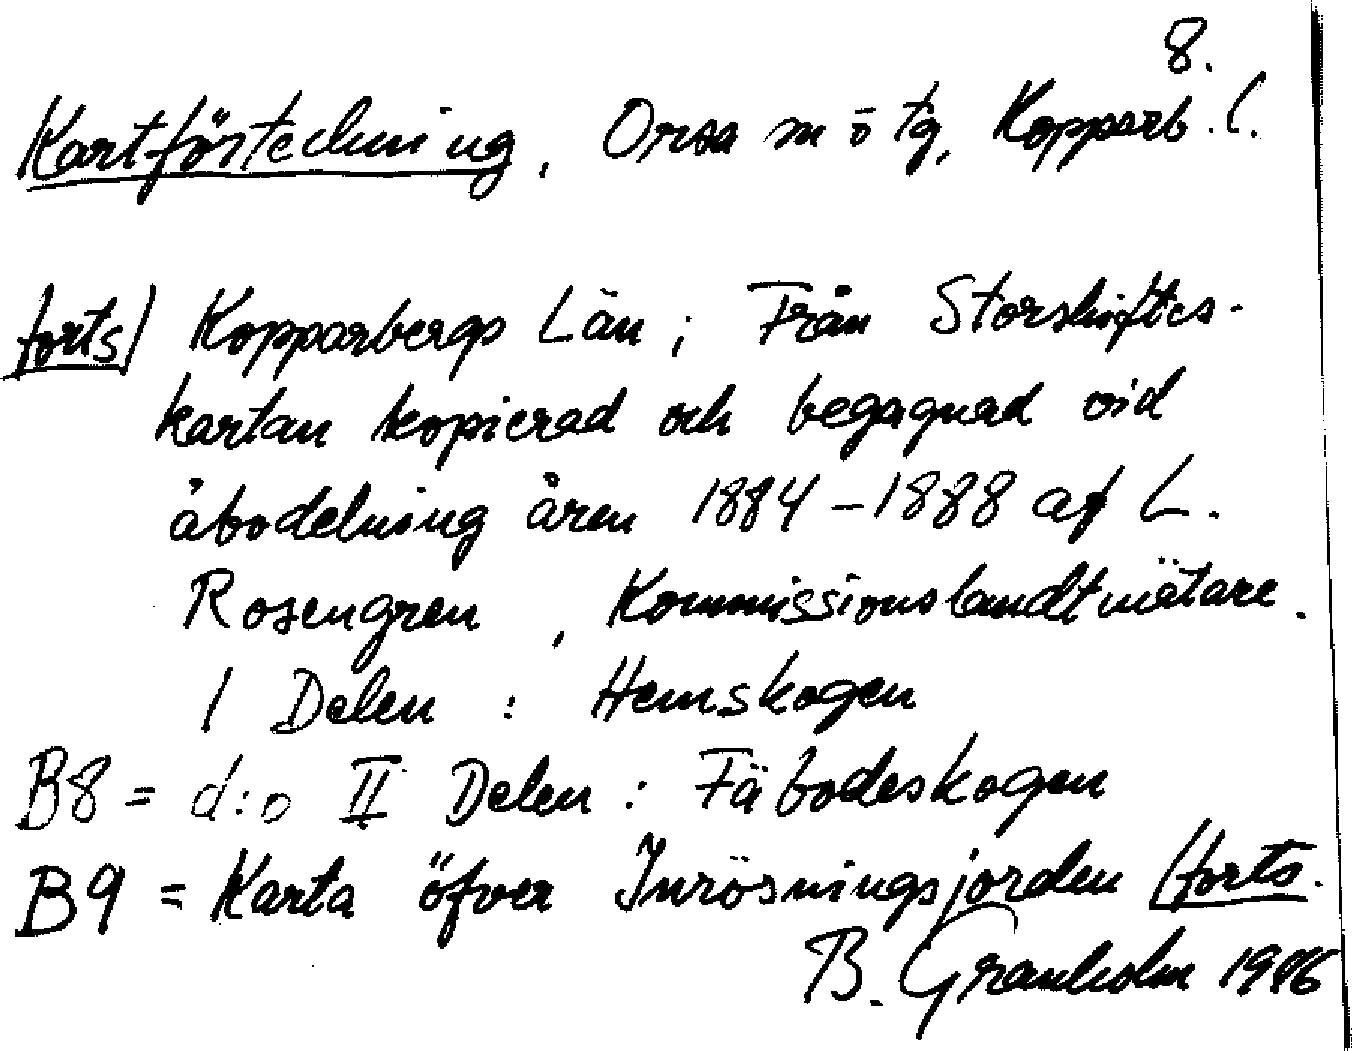 8.
Kartförteckning, Orsa m ö tg, Kopparb. l.
forts) Kopparbergs Län; Från Storskiftes-
kartan kopierad och begagnad vid
åbodelning åren 1884-1888 af L.
Rosengren, Kommissionslandtmätare.
I Delen: Hemskogen
B8 = d:o II Delen: Fäbodeskogen
B9 = Karta öfver Inrösningsjorden (forts.
B. Granholm 1986